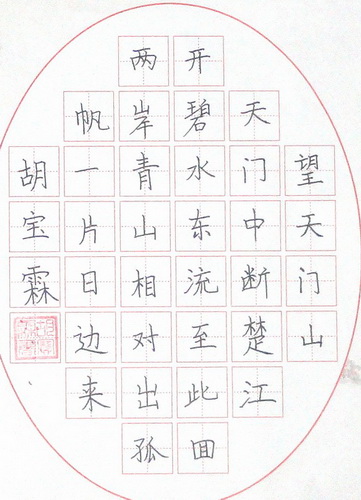 望天门山
天门中断楚江
开碧水东流至此囬
两岸青山相对出孤
帆一片日边来
胡宝霖